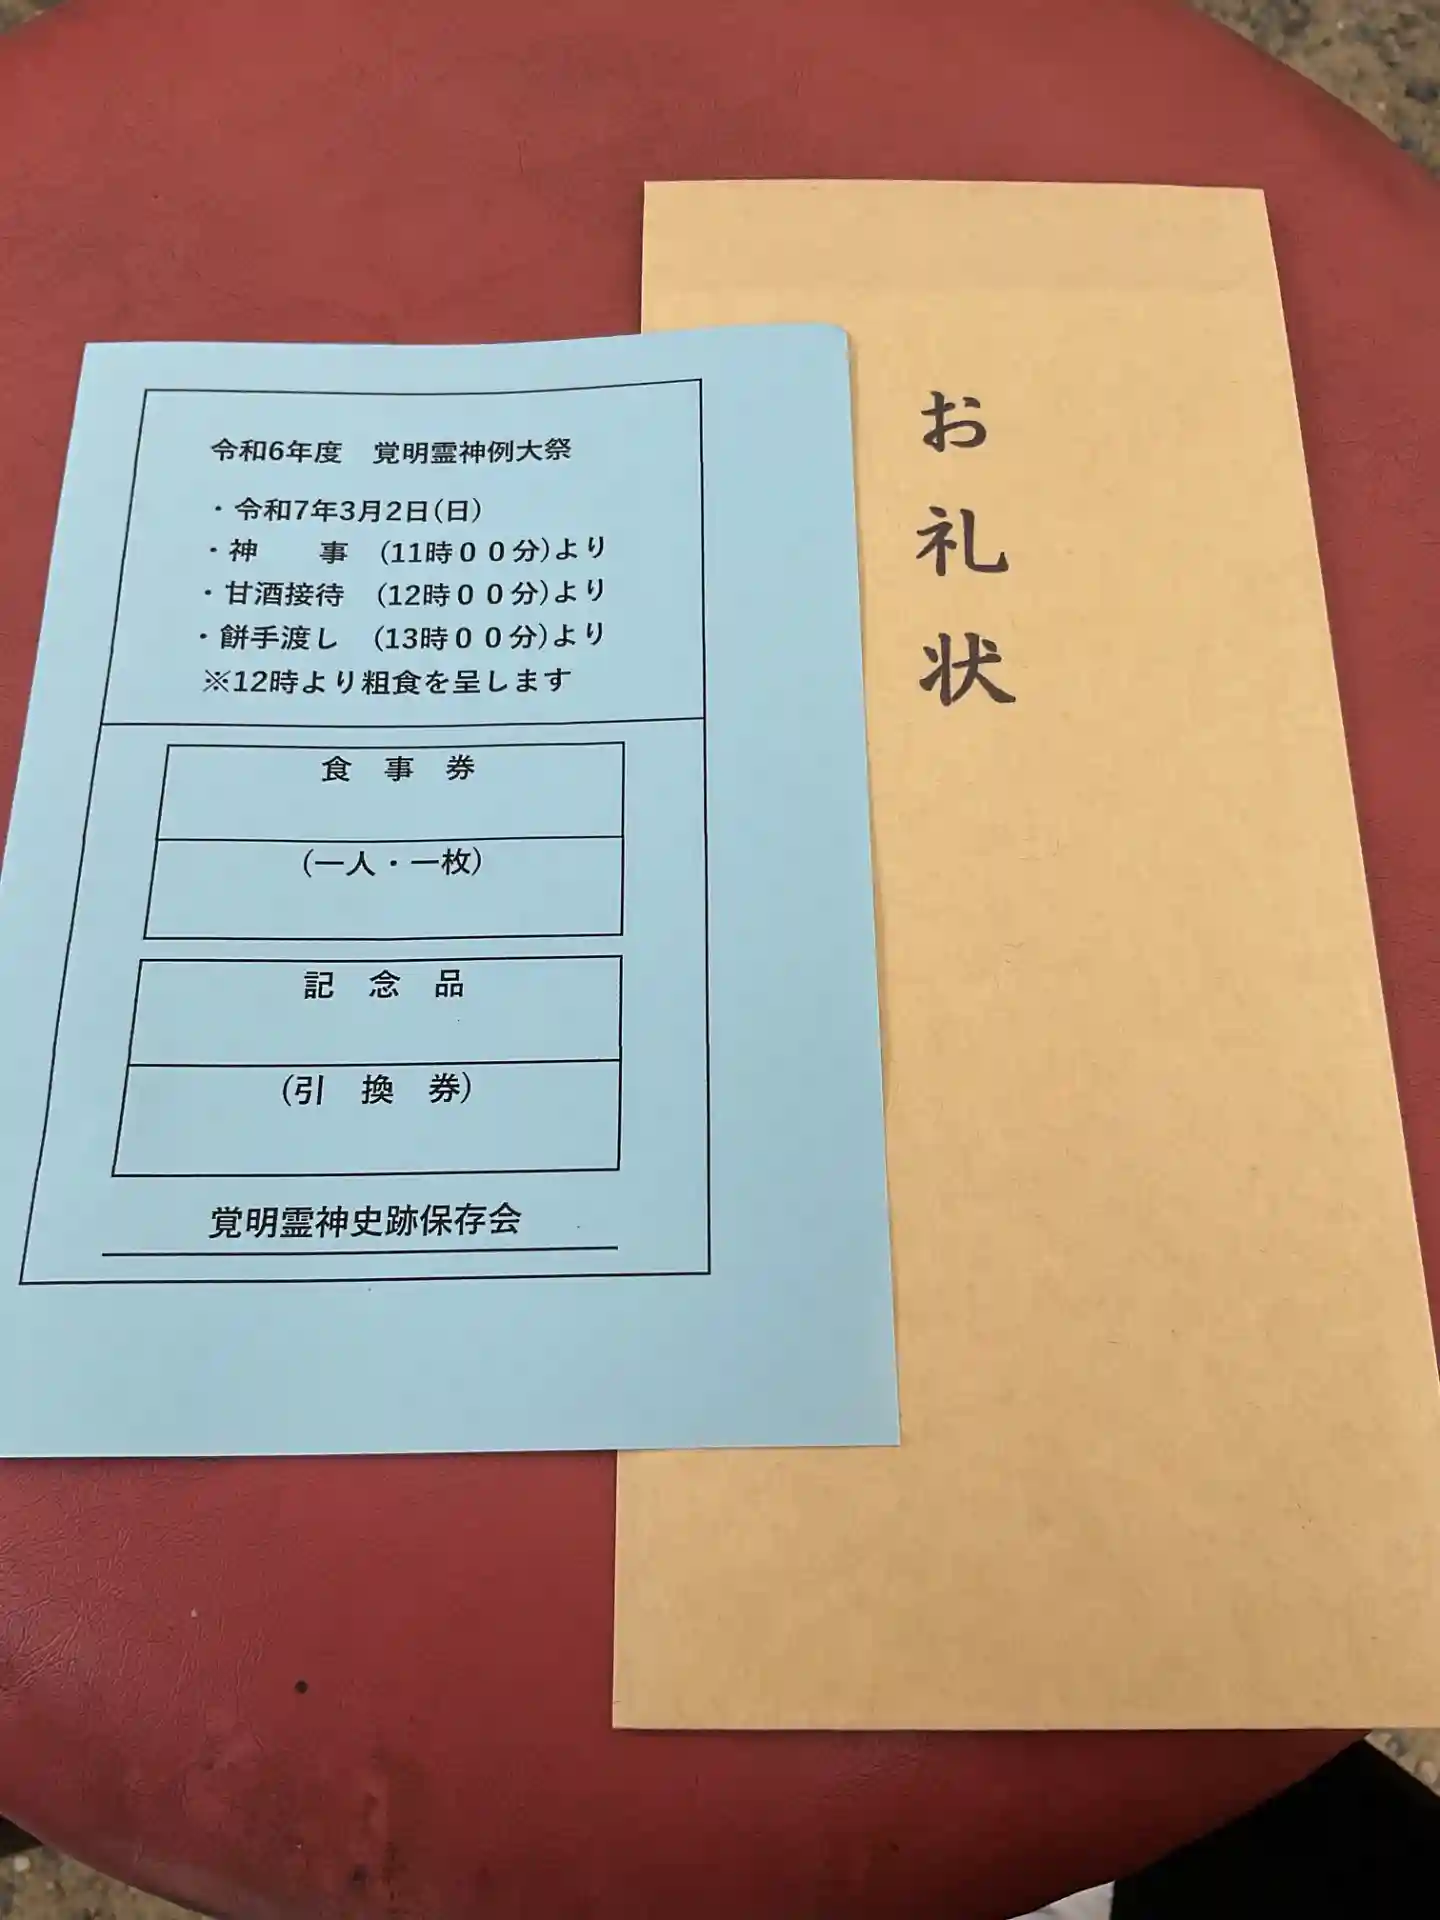 令和6年度　覚明霊神例大祭
・令和7年3月2日(日)
・神　　事　(11時００分)より
・甘酒接待　(12時００分)より
・餅手渡し　(13時００分)より
※12時より粗食を呈します
食　事　券
(一人・一枚)
記　念　品
(引　換　券)
覚明霊神史跡保存会
お礼状